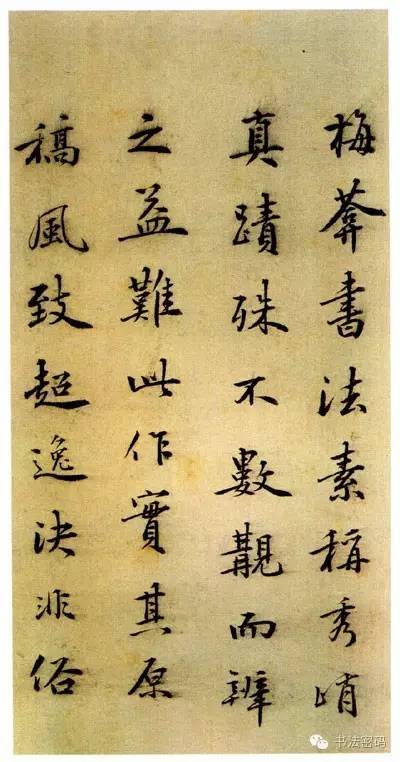 梅莾書法素稱秀峭
真蹟殊不數覯而辨
之益難此作實其原
稿風致超逸決非俗
书法密码